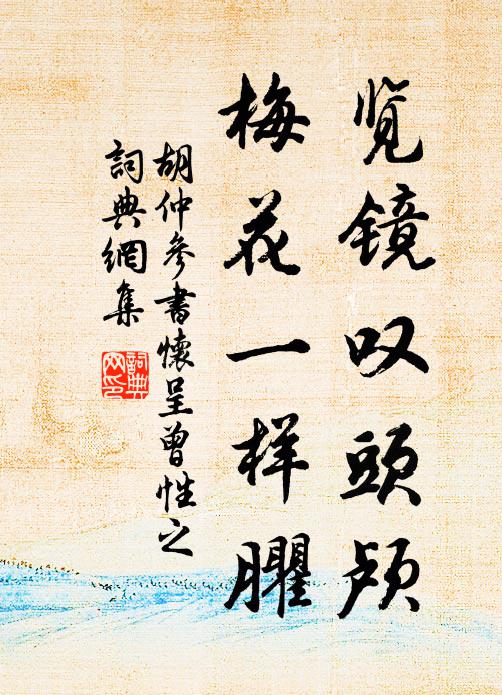 览镜叹头颅
梅花一样臞
胡仲参书懷呈曾性之
詞典網集
詞典
网印